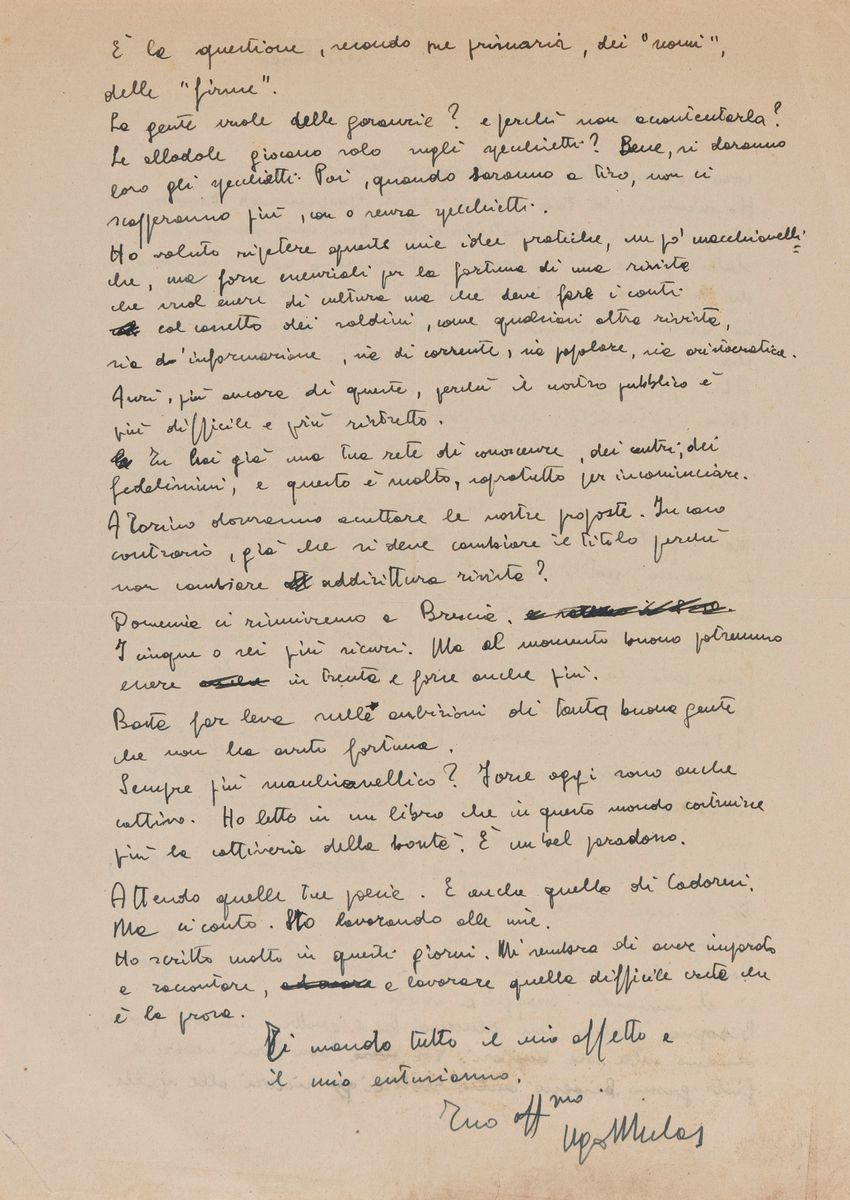 È la questione, secondo me primaria, dei "nomi",
delle "firme".
La gente vuole delle garanzie? e perchè non accontentarla?
Le allodole giocano solo sugli specchietti? Bene, si daranno
loro gli specchietti. Poi, quando saranno a tiro, non ci
scapperanno più, con o senza specchietti.
Ho voluto ripetere queste mie idee pratiche, un pò macchiavelli
che, ma forse essenziali per la fortuna di una rivista
che vuol essere di cultura ma che deve fare i conti
col cassetto dei soldini, come qualsiasi altra rivista,
sia d'informazione, sia di corrente, sia popolare, sia aristocratica.
Anzi, più ancora di queste, perchè il nostro pubblico è
più difficile e più ristretto.
Tu hai già una tua rete di conoscenze, dei centri, dei
fedelissimi, e questo è molto, sopratutto per incominciare.
A Torino dovranno accettare le nostre proposte. In caso
contrario, già che si deve cambiare il titolo perchè
non cambiare addirittura rivista?
Domenica ci riuniremo a Brescia.
I cinque o sei più sicuri. Ma al momento buono potremmo
essere in trenta e forse anche più.
Basta far leva sulle ambizioni di tanta buona gente
che non ha avuto fortuna.
Sempre più macchiavellico? Forse oggi sono anche
cattivo. Ho letto in un libro che in questo mondo costruisce
più la cattiveria della bontà. È un bel paradosso.
Attendo quelle tue poesie. E anche quelle di Cadoresi.
Ma ci conto. Sto lavorando alle mie.
Ho scritto molto in questi giorni. Mi sembra di avere imparato
a raccontare, e lavorare quella difficile creta che
è la prosa.
Ti mando tutto il mio affetto e
il mio entusiasmo.
Tuo aff.mo
Ugo Mulas